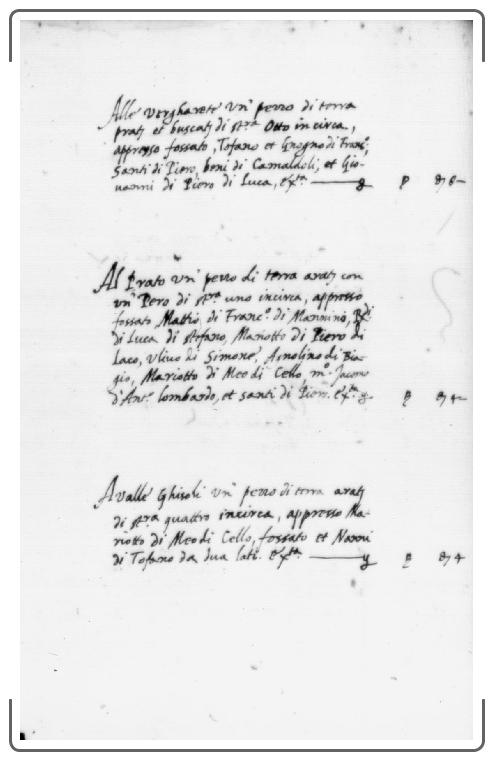 Alle vergharete un° pezzo di terra
pratj et buscatj di st.ra otto incirca,
appresso fossato, Tofano et Gnogno di Franc.°,
Santi di Piero, beni di Camaldoli, et Gio-
vanni di Piero di Luca, &
Al Prato un° pezzo di terra aratj con
un° Pero di st.ra uno incirca, appresso
fossato, Mattio, di Franc.° di Mannino,
di Luca di Stefano, Mariotto di Piero di
Laco, Ulivo di Simone, Agnolino di Bia-
gio, Mariotto di Meo di Cello m.° Jacomo
d'Ant.° lombardo, et santi di Piero.
A valle Ghisoli un° pezzo di terra aratj
di st.ra quattro incirca, appresso Ma-
riotto di Meo di Cello, fossato et Nanni
di Tofano da dua lati.